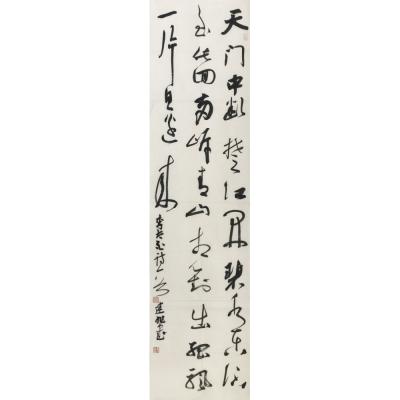 天门中断楚江开碧水东流
至此回两岸青山相對出孤帆
一片日边来